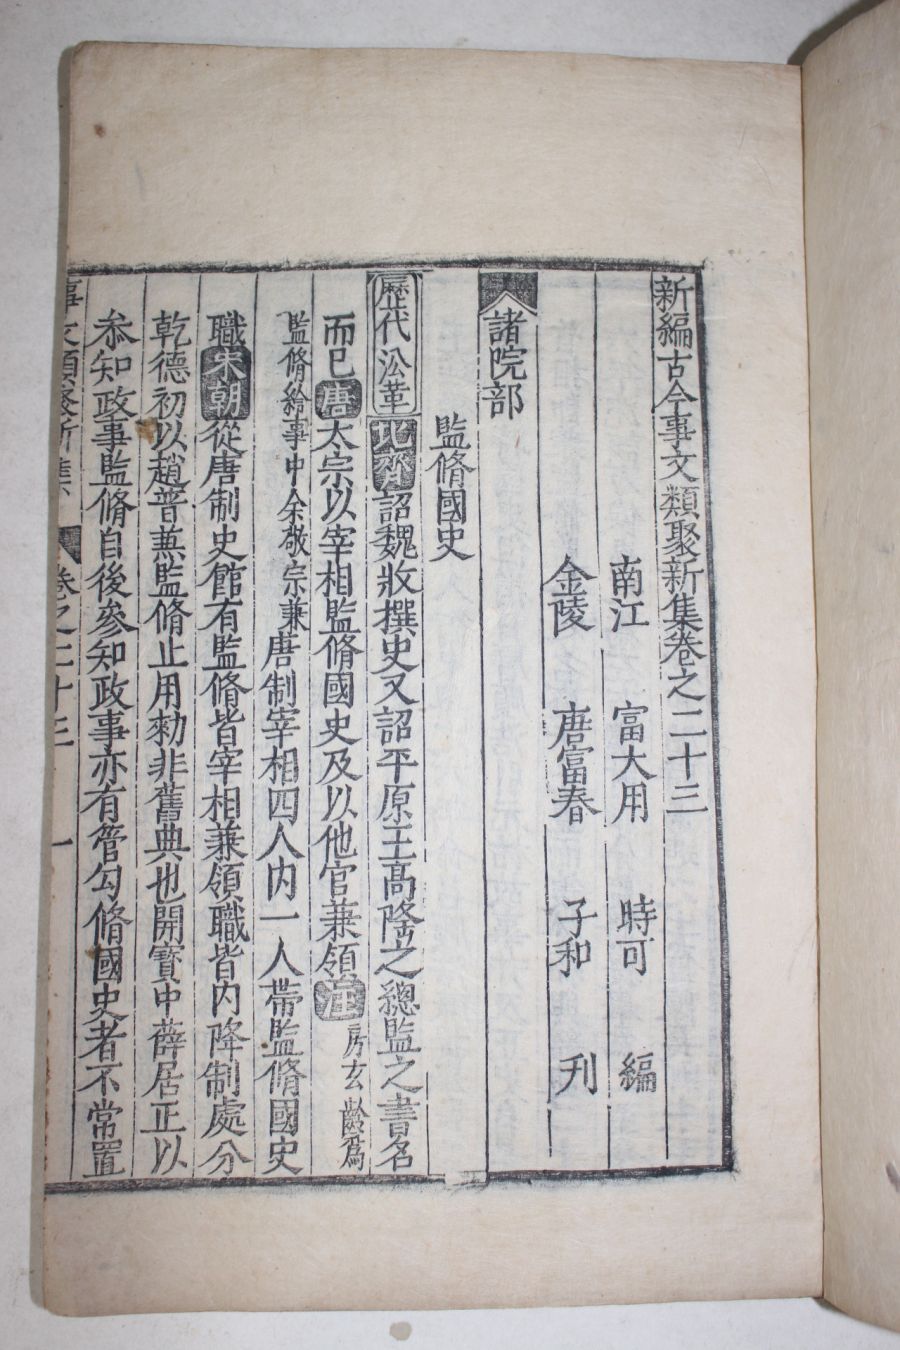 新編古今事文類聚新集卷之二十三
南江 富大用 時可 編
金陵 唐富春 子和 刊
諸院部
監脩國史
歷代沿革 北齊詔魏收撰史又詔平原王高隆之總監之書名
而已唐太宗以宰相監脩國史及以他官兼領注房玄齡爲
監脩給事中余敬宗兼唐制宰相四人内一人帶監脩國史
職宋朝從唐制史館有監脩皆宰相兼領職皆内降制處分
乾德初以趙普兼監脩止用勑非舊典也開寶中薛居正以
叅知政事監脩自後參知政事亦有管勾脩國史者不常置
事文類聚新集 卷之二十三 一